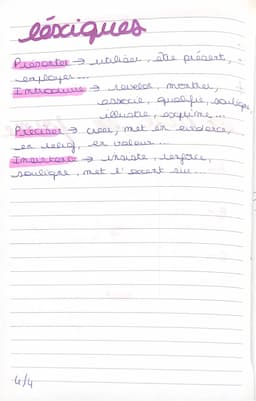 léxiques
Présenter → utiliser, être présent,
employer...
Introduire → révéler, montrer,
associe, qualifie, souligne,
illustre, exprime...
Préciser → créer, met en évidence,
en relief, en valeur...
Insistance → insiste, renforce,
souligne, met l'accent sur...
4/4